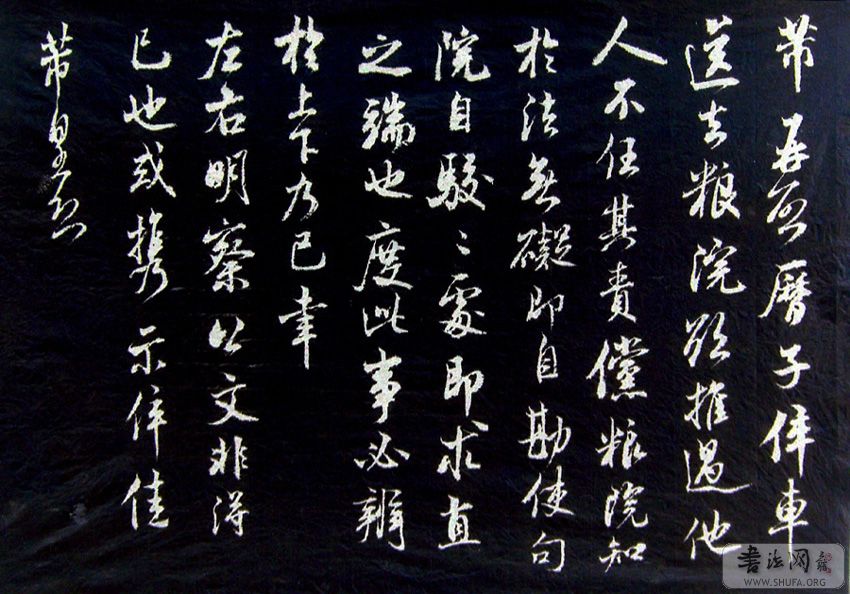 芾再啓曆子倅車
送去粮院欲推過他
人不任其責儻粮院知
於法無礙即自勘使句
院自駮〻處即求直
之端也度此事必辨
於上下乃已幸
左右明察公文非得
已也或携示倅佳
芾皇恐
書法网
WWW.SHUFA.ORG